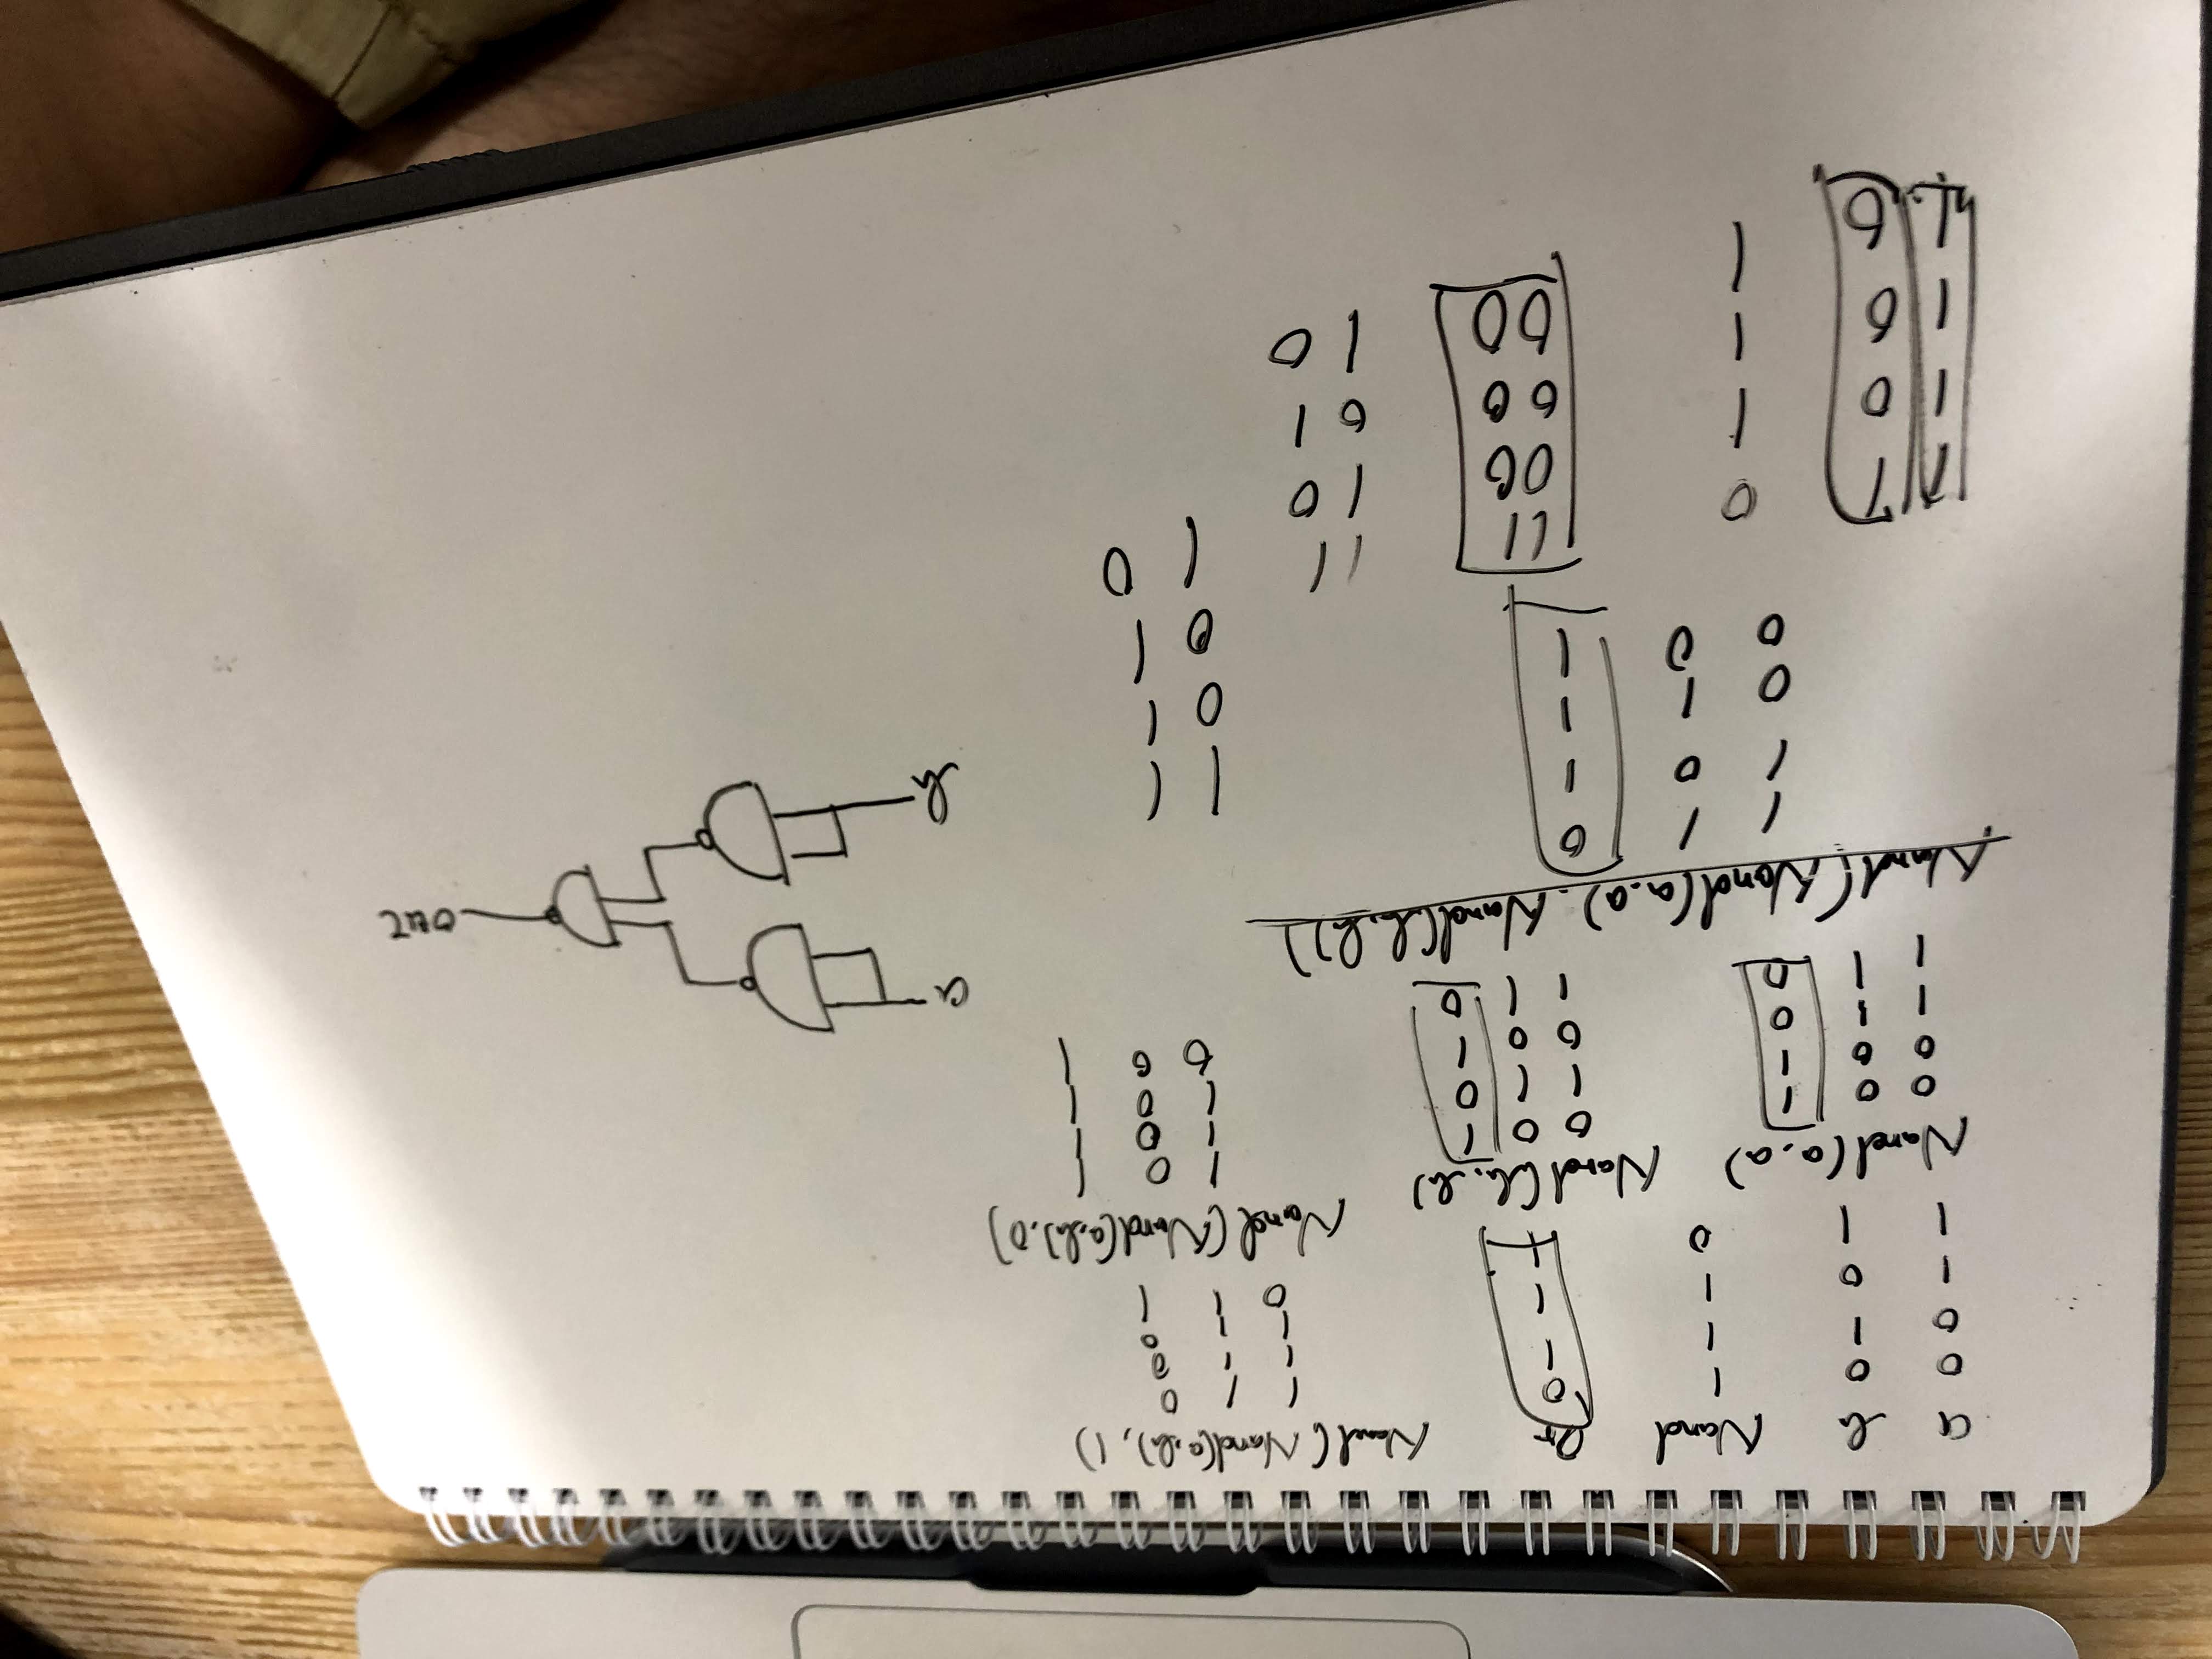 a b Nand Or
0 0 1 0
0 1 1 1
1 0 1 1
1 1 0 1
Nand(Nand(a,b), 1)
1 1 0
1 1 0
1 1 0
0 1 1
Nand(Nand(a,b),0)
1 0 1
1 0 1
1 0 1
0 0 1
Nand(a,a)
0 0 1
0 0 1
1 1 0
1 1 0
Nand(b,b)
0 0 1
1 1 0
0 0 1
1 1 0
Nand(Nand(a,a), Nand(b,b))
1 1 0
1 0 1
0 1 1
0 0 1
a
b
out
1 1
0 1
0 1
1 0
1 1 0
1 0 1
1 0 1
1 0 1
11
00
00
00
11
10
01
10